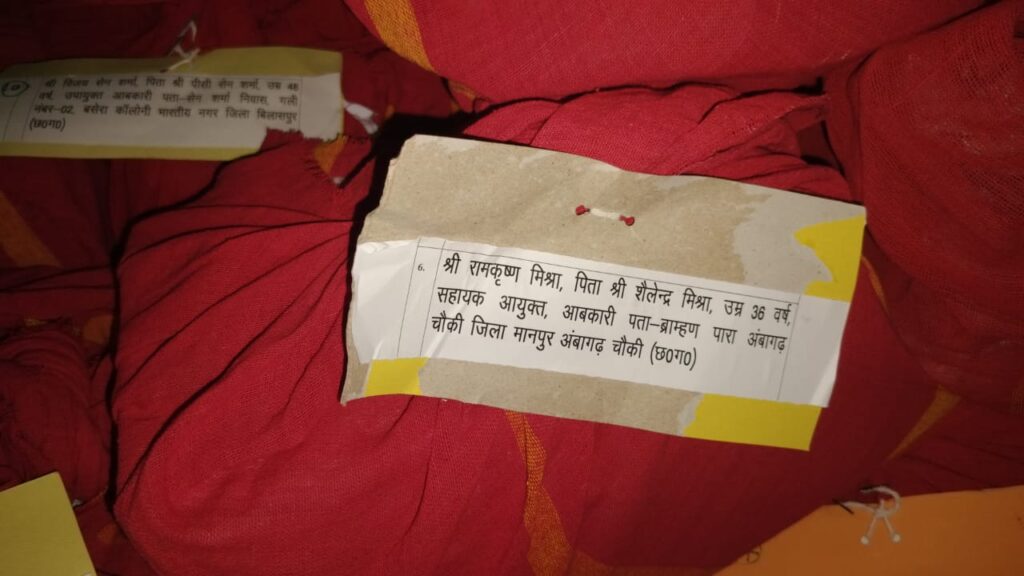 श्री विजय सेन शर्मा, पिता श्री पीसी सेन शर्मा, उम्र 48
वर्ष, उपायुक्त आबकारी पता–सेन शर्मा निवास, गली
नंबर–02, बसेरा कॉलोनी भारतीय नगर जिला बिलासपुर
(छ0ग0)
6. श्री रामकृष्ण मिश्रा, पिता श्री शैलेन्द्र मिश्रा, उम्र 36 वर्ष,
सहायक आयुक्त, आबकारी पता–ब्राम्हण पारा अंबागढ़
चौकी जिला मानपुर अंबागढ़ चौकी (छ0ग0)